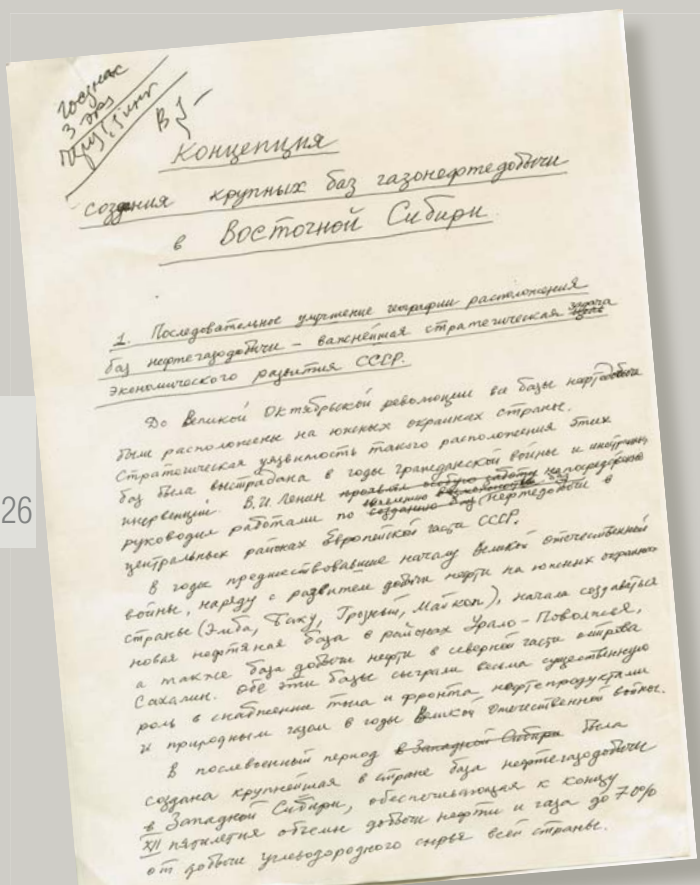 3 экз
Концепция
создания крупных баз газонефтедобычи
в Восточной Сибири
1. Последовательное улучшение географии расположения
баз нефтегазодобычи – важнейшая стратегическая задача
экономического развития СССР.
До Великой Октябрьской революции все базы нефтедобычи
были расположены на южных окраинах страны.
Стратегическая уязвимость такого расположения этих
баз была выстрадана в годы гражданской войны и иностранной
интервенции. В.И. Ленин проявлял особую заботу непосредственно
руководил работами по созданию баз нефтедобычи в
центральных районах Европейской части СССР.
В годы предшествовавшие началу Великой отечественной
войны, наряду с развитием добычи нефти на южных окраинах
страны (Эмба, Баку, Грозный, Майкоп), начала создаваться
новая нефтяная база в районах Урало-Поволжья,
а также база добычи нефти в северной части острова
Сахалин. Обе эти базы сыграли весьма существенную
роль в снабжении тыла и фронта нефтепродуктами
и природным газом в годы Великой Отечественной войны.
В послевоенный период в Западной Сибири была
создана крупнейшая в стране база нефтегазодобычи
в Западной Сибири, обеспечивающая к концу
XII пятилетия объемы добычи нефти и газа до 70%
от добычи углеводородного сырья всей страны.
26